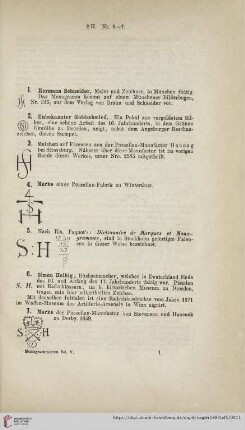 SH. Nr. 1—7.
1. Hermann Schneider, Maler und Zeichner, in München thätig.
Das Monogramm kommt auf einem Münchener Bilderbogen,
Nr. 315, aus dem Verlag von Braun und Schneider vor.
2. Unbekannter Goldschmied. Ein Pokal aus vergoldetem Sil-
ber, eine schöne Arbeit des 16. Jahrhunderts, in dem Grünen
Gewölbe zu Dresden, zeigt, nebst dem Augsburger Beschau-
zeichen, diesen Stempel.
3. Zeichen auf Fayencen aus der Porzellan-Manufactur
bei Strassburg. Näheres über diese Manufactur ist im vorigen
Bande dieses Werkes, unter Nro. 2985 mitgetheilt.
4. Marke einer Porzellan-Fabrik zu Winterthur.
5. Nach Ris. Paquot's: Dictionnaire de Marques et Mono-
grammes, sind in Stockholm gefertigte Faien-
cen in dieser Weise bezeichnet.
S:H
6. Simon Helbig, Büchsenmacher, welcher in Deutschland Ende
des 16. und Anfang des 17. Jahrhunderts thätig war. Pistolen
S. H. mit Radschlössern, im k. historischen Museum zu Dresden,
tragen sein hier ersichtliches Zeichen.
Mit denselben Initialen ist eine Radschlossbüchse vom Jahre 1671
im Waffen-Museum des Artillerie-Arsenals in Wien signirt.
7. Marke der Porzellan-Manufactur von Stevenson und Hancock
zu Derby. 1859.
Monogrammisten Bd. V. 1